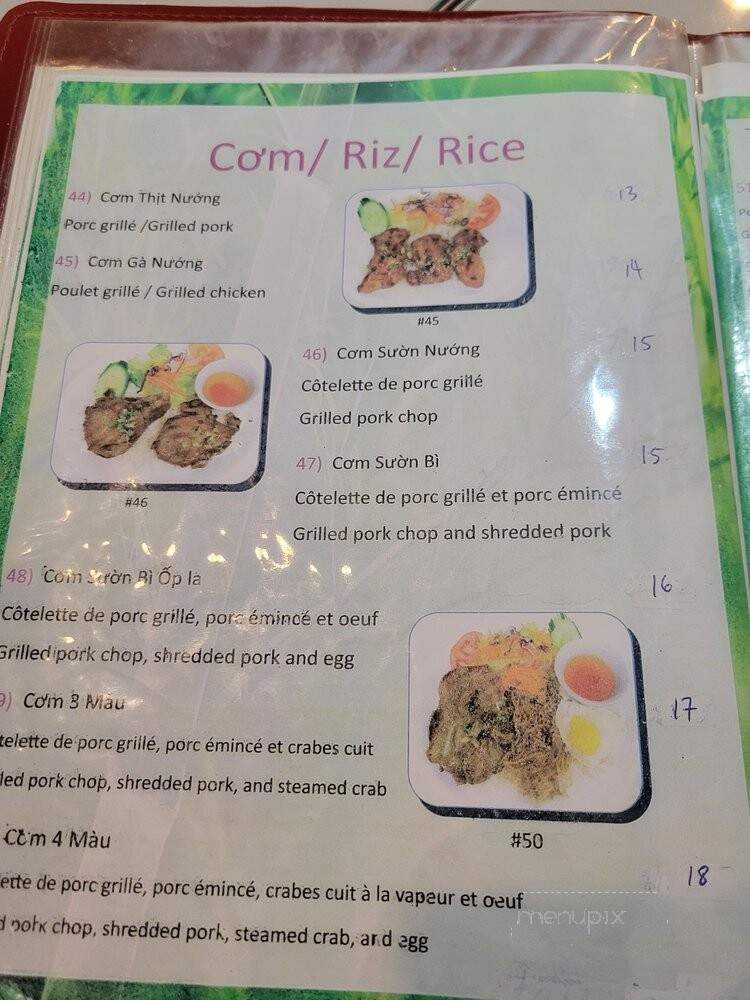 Cơm/ Riz/ Rice
44) Cơm Thịt Nướng 13
Porc grillé /Grilled pork
45) Cơm Gà Nướng 14
Poulet grillé / Grilled chicken
#45
46) Cơm Sườn Nướng 15
Côtelette de porc grillé
Grilled pork chop
#46
47) Cơm Sườn Bì 15
Côtelette de porc grillé et porc émincé
Grilled pork chop and shredded pork
48) Cơm Sườn Bì Ốp la 16
Côtelette de porc grillé, porc émincé et oeuf
Grilled pork chop, shredded pork and egg
9) Cơm 3 Màu 17
telette de porc grillé, porc émincé et crabes cuit
led pork chop, shredded pork, and steamed crab
#50
Cơm 4 Màu 18
ette de porc grillé, porc émincé, crabes cuit à la vapeur et oeuf
d pork chop, shredded pork, steamed crab, and egg
menupix